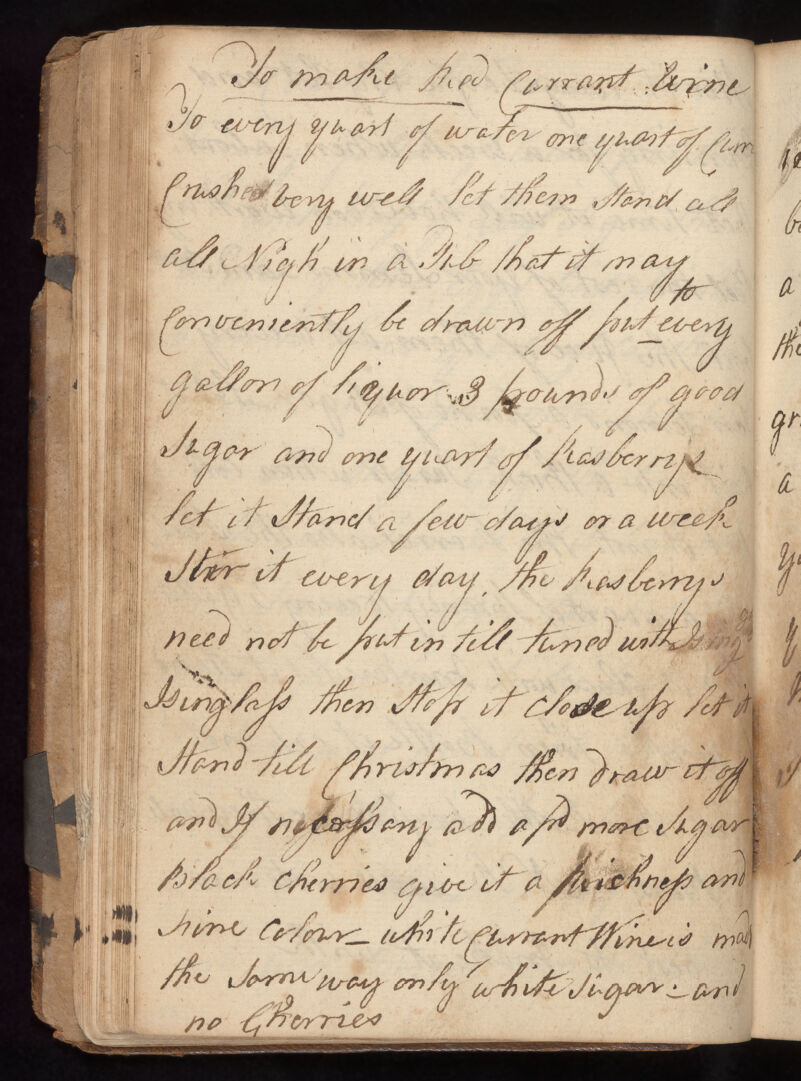 To make Red Currant Wine
To every quart of water one quart of Curr
Crushed very well let them Stand all
all Nigh in a Tub that it may
to
Conveniently be drawn off put every
gallon of liquor 3 pounds of good
Sugar and one quart of Rasberrys
let it Stand a few days or a week
Stir it every day, the Rasberrys
need not be put in till tuned with Ising
Isinglass then Stop it close up let it
Stand till Christmas then draw it off
and If necessary add a pd more Sugar
Black Cherries give it a richness and
fine Colour _ white Currant Wine is mad
the same way only white Sugar - and
no Cherries
be
a
the
gr
a